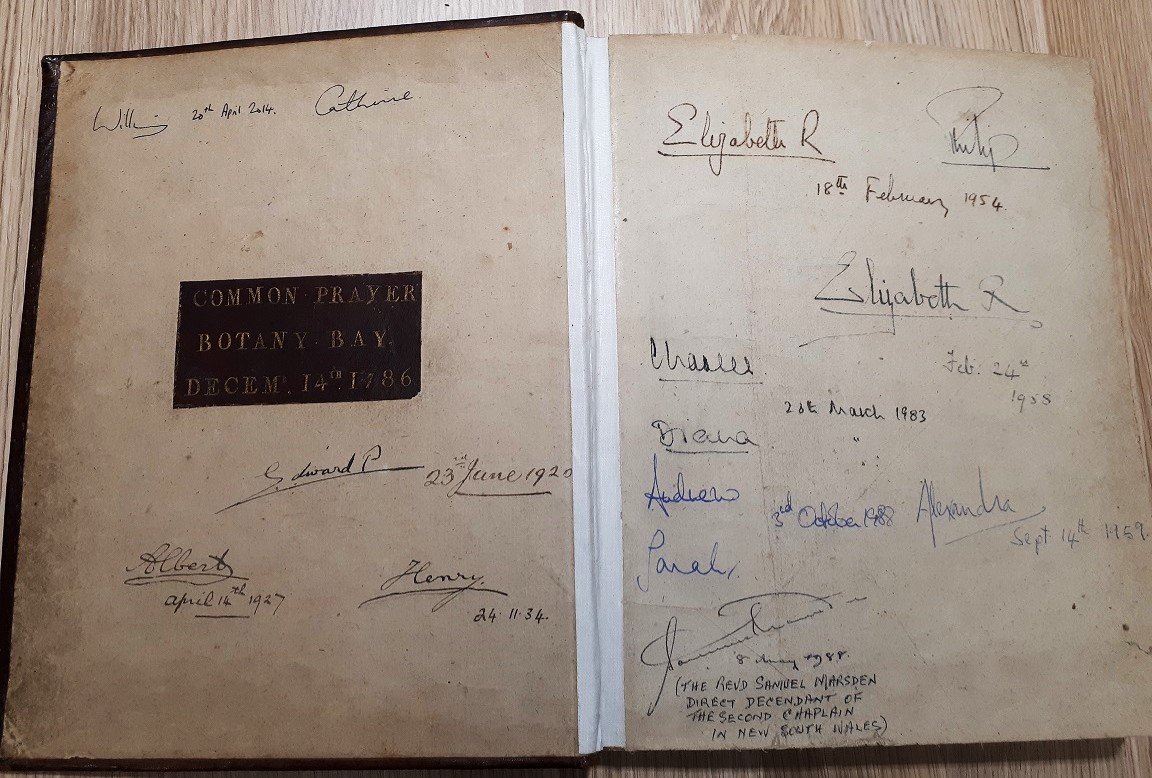 William 20th April 2014. Catherine.
COMMON PRAYER
BOTANY BAY.
DECEMr. 14TH 1786
Edward P 23rd June 1920
Albert
april 14th 1927
Henry.
24.11.34.
Elizabeth R Philip
18th February 1954.
Elizabeth R
Feb: 24th
1958
Charles.
28th March 1983
"
Diana
Andrew 3rd October 1988
Sarah.
Alexandra
Sept. 14th 1959.
8 May 1988.
(THE REVD SAMUEL MARSDEN
DIRECT DECENDANT OF
THE SECOND CHAPLAIN
IN NEW SOUTH WALES)